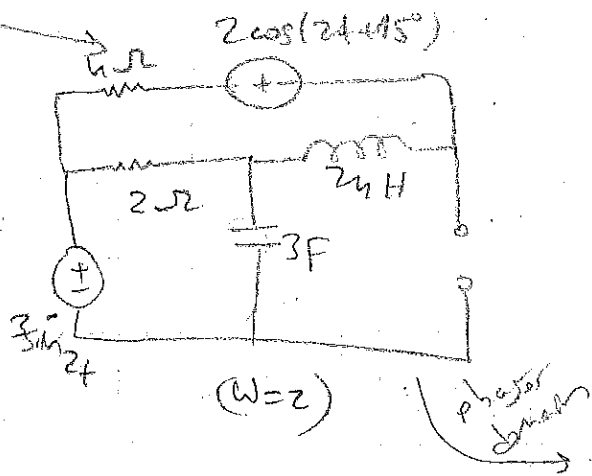 2cos(2t+45°)
4Ω
+
2Ω
24H
3F
+
-
3sin2t
(W=2)
phasor
domain